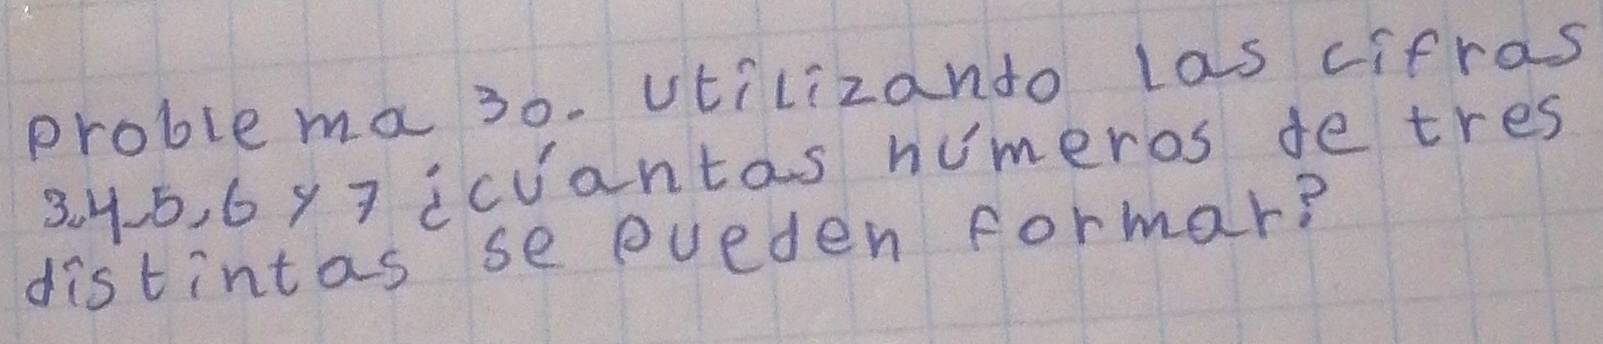 problema 30. utilizando las cifras
3,4,5,6 y 7 ¿cuántas números de tres
distintas se pueden formar?